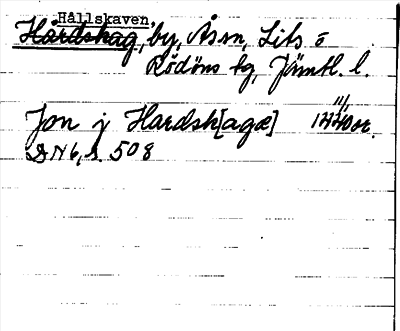 Hållskaven,
Hårdshag, by, Åsen, Lits o
Rödöns tg, Jämtl. l.
Jon j Hardsh[agæ] 11/1 1440 or.
DN 6, s. 508